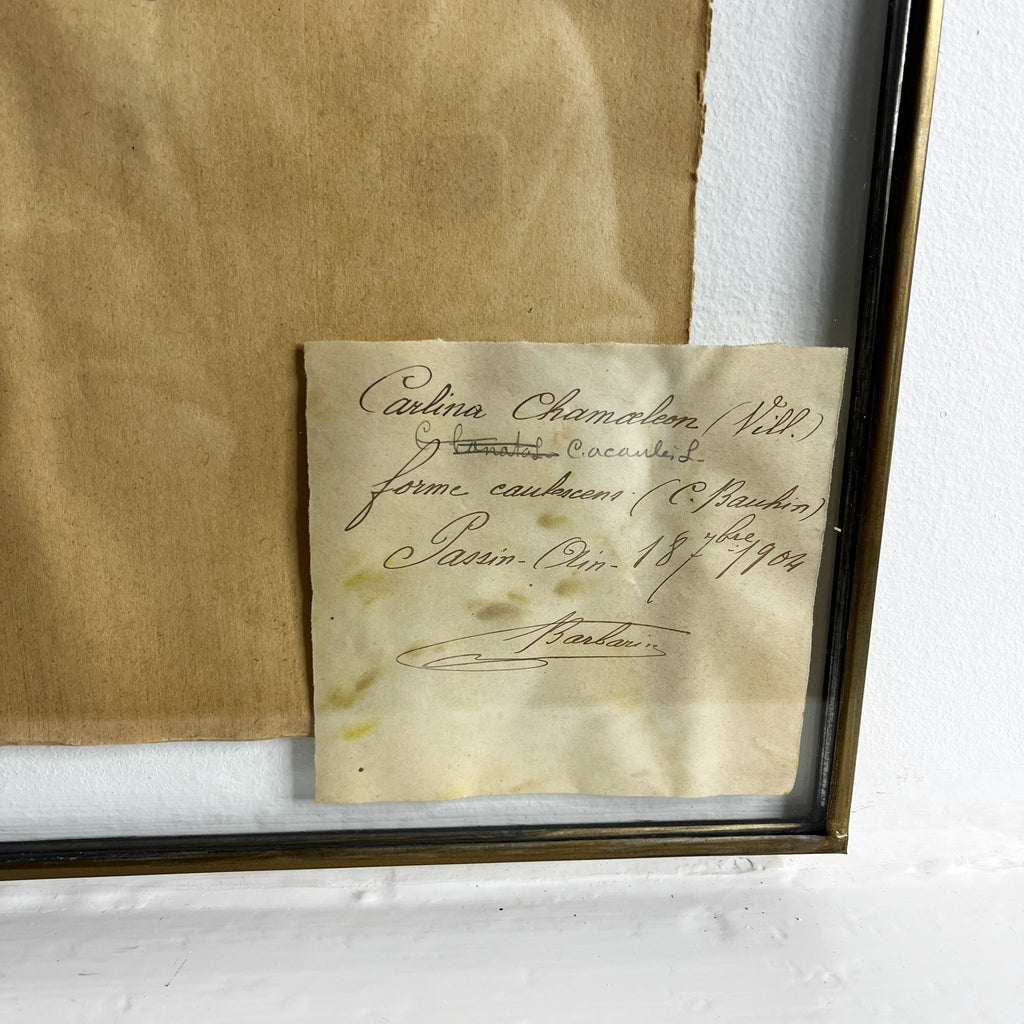 Carlina Chamœleon (Vill.)
C. lanata L. C. acaulis L.
forme caulescens. (C. Bauhin)
Passin - Ain - 18 7bre 1904
Barbarin